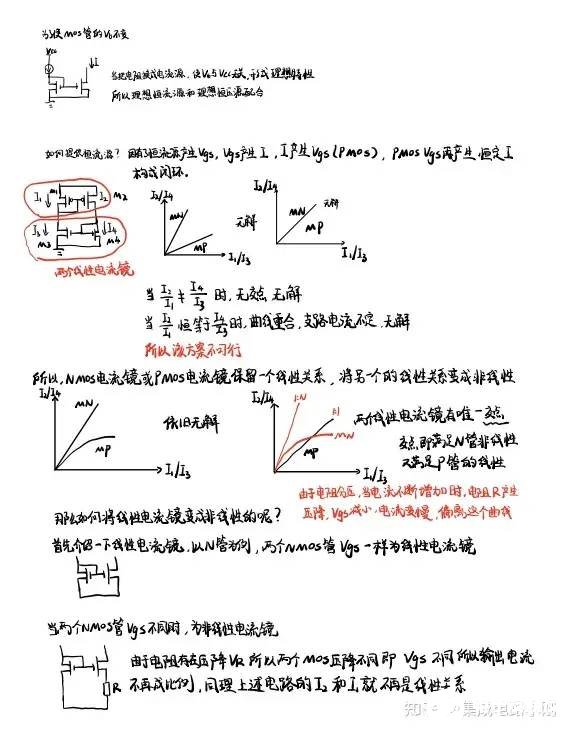 当以使MOS管的Vb不变
Vcc
I
当把电阻换成电流源，使Vb与Vcc无关，形成理想特性
所以理想恒流源和理想恒压源配合
如何提供恒流源？ 由有了恒流源产生Vgs，Vgs产生I，I产生Vgs(PMOS)，PMOS Vgs再产生恒定I
构成闭环.
I1 M1 I2 M2
I3 M3 I4 M4
两个线性电流镜
I2/I4 MN MP 无解 I1/I3
I2/I4 MN 无解 MP I1/I3
当 I2/I1 ≠ I4/I3 时，无交点，无解
当 I2/I1 恒等于 I4/I3 时，曲线重合，支路电流不定，无解
所以该方案不可行
所以，NMOS电流镜或PMOS电流镜保留一个线性关系，将另一个的线性关系变成非线性
I2/I4 MN MP I1/I3
依旧无解
I2/I4 1:N 1:1 MN MP I1/I3
两个线性电流镜有唯一交点
交点即满足N管非线性
又满足P管的线性
由于电阻分压，当电流不断增加时，电阻R产生
压降，Vgs减小，电流变慢，偏离这个曲线
那么如何将线性电流镜变成非线性的呢？
首先介绍一下线性电流镜，以N管为例，两个NMOS管Vgs一样为线性电流镜
当两个NMOS管Vgs不同时，为非线性电流镜
R
由于电阻存在压降VR 所以两个MOS压降不同即 Vgs不同所以输出电流
不再成比例，同理上述电路的I2和I1就不再是线性关系
知乎